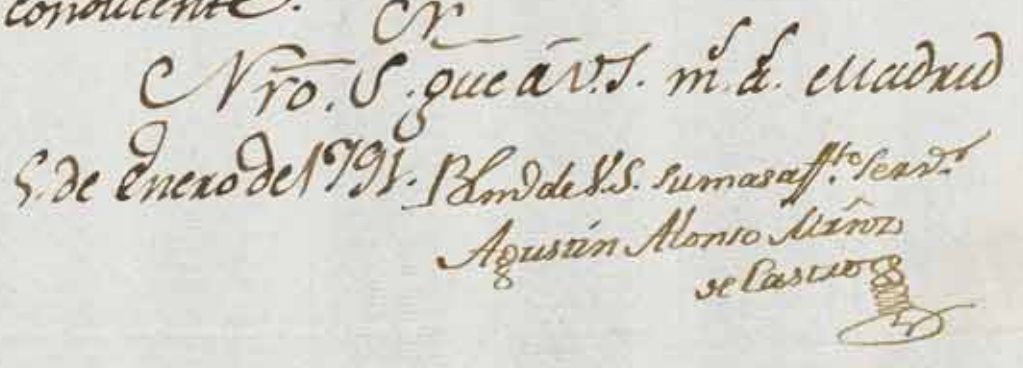 conducente.
Nro. S. gue á V.S. m.s a.s Madrid
5. de Enero de 1791. Blm.d de V.S. su mas aff.to Serv.r
Agustín Alonso Muñoz
de Castro